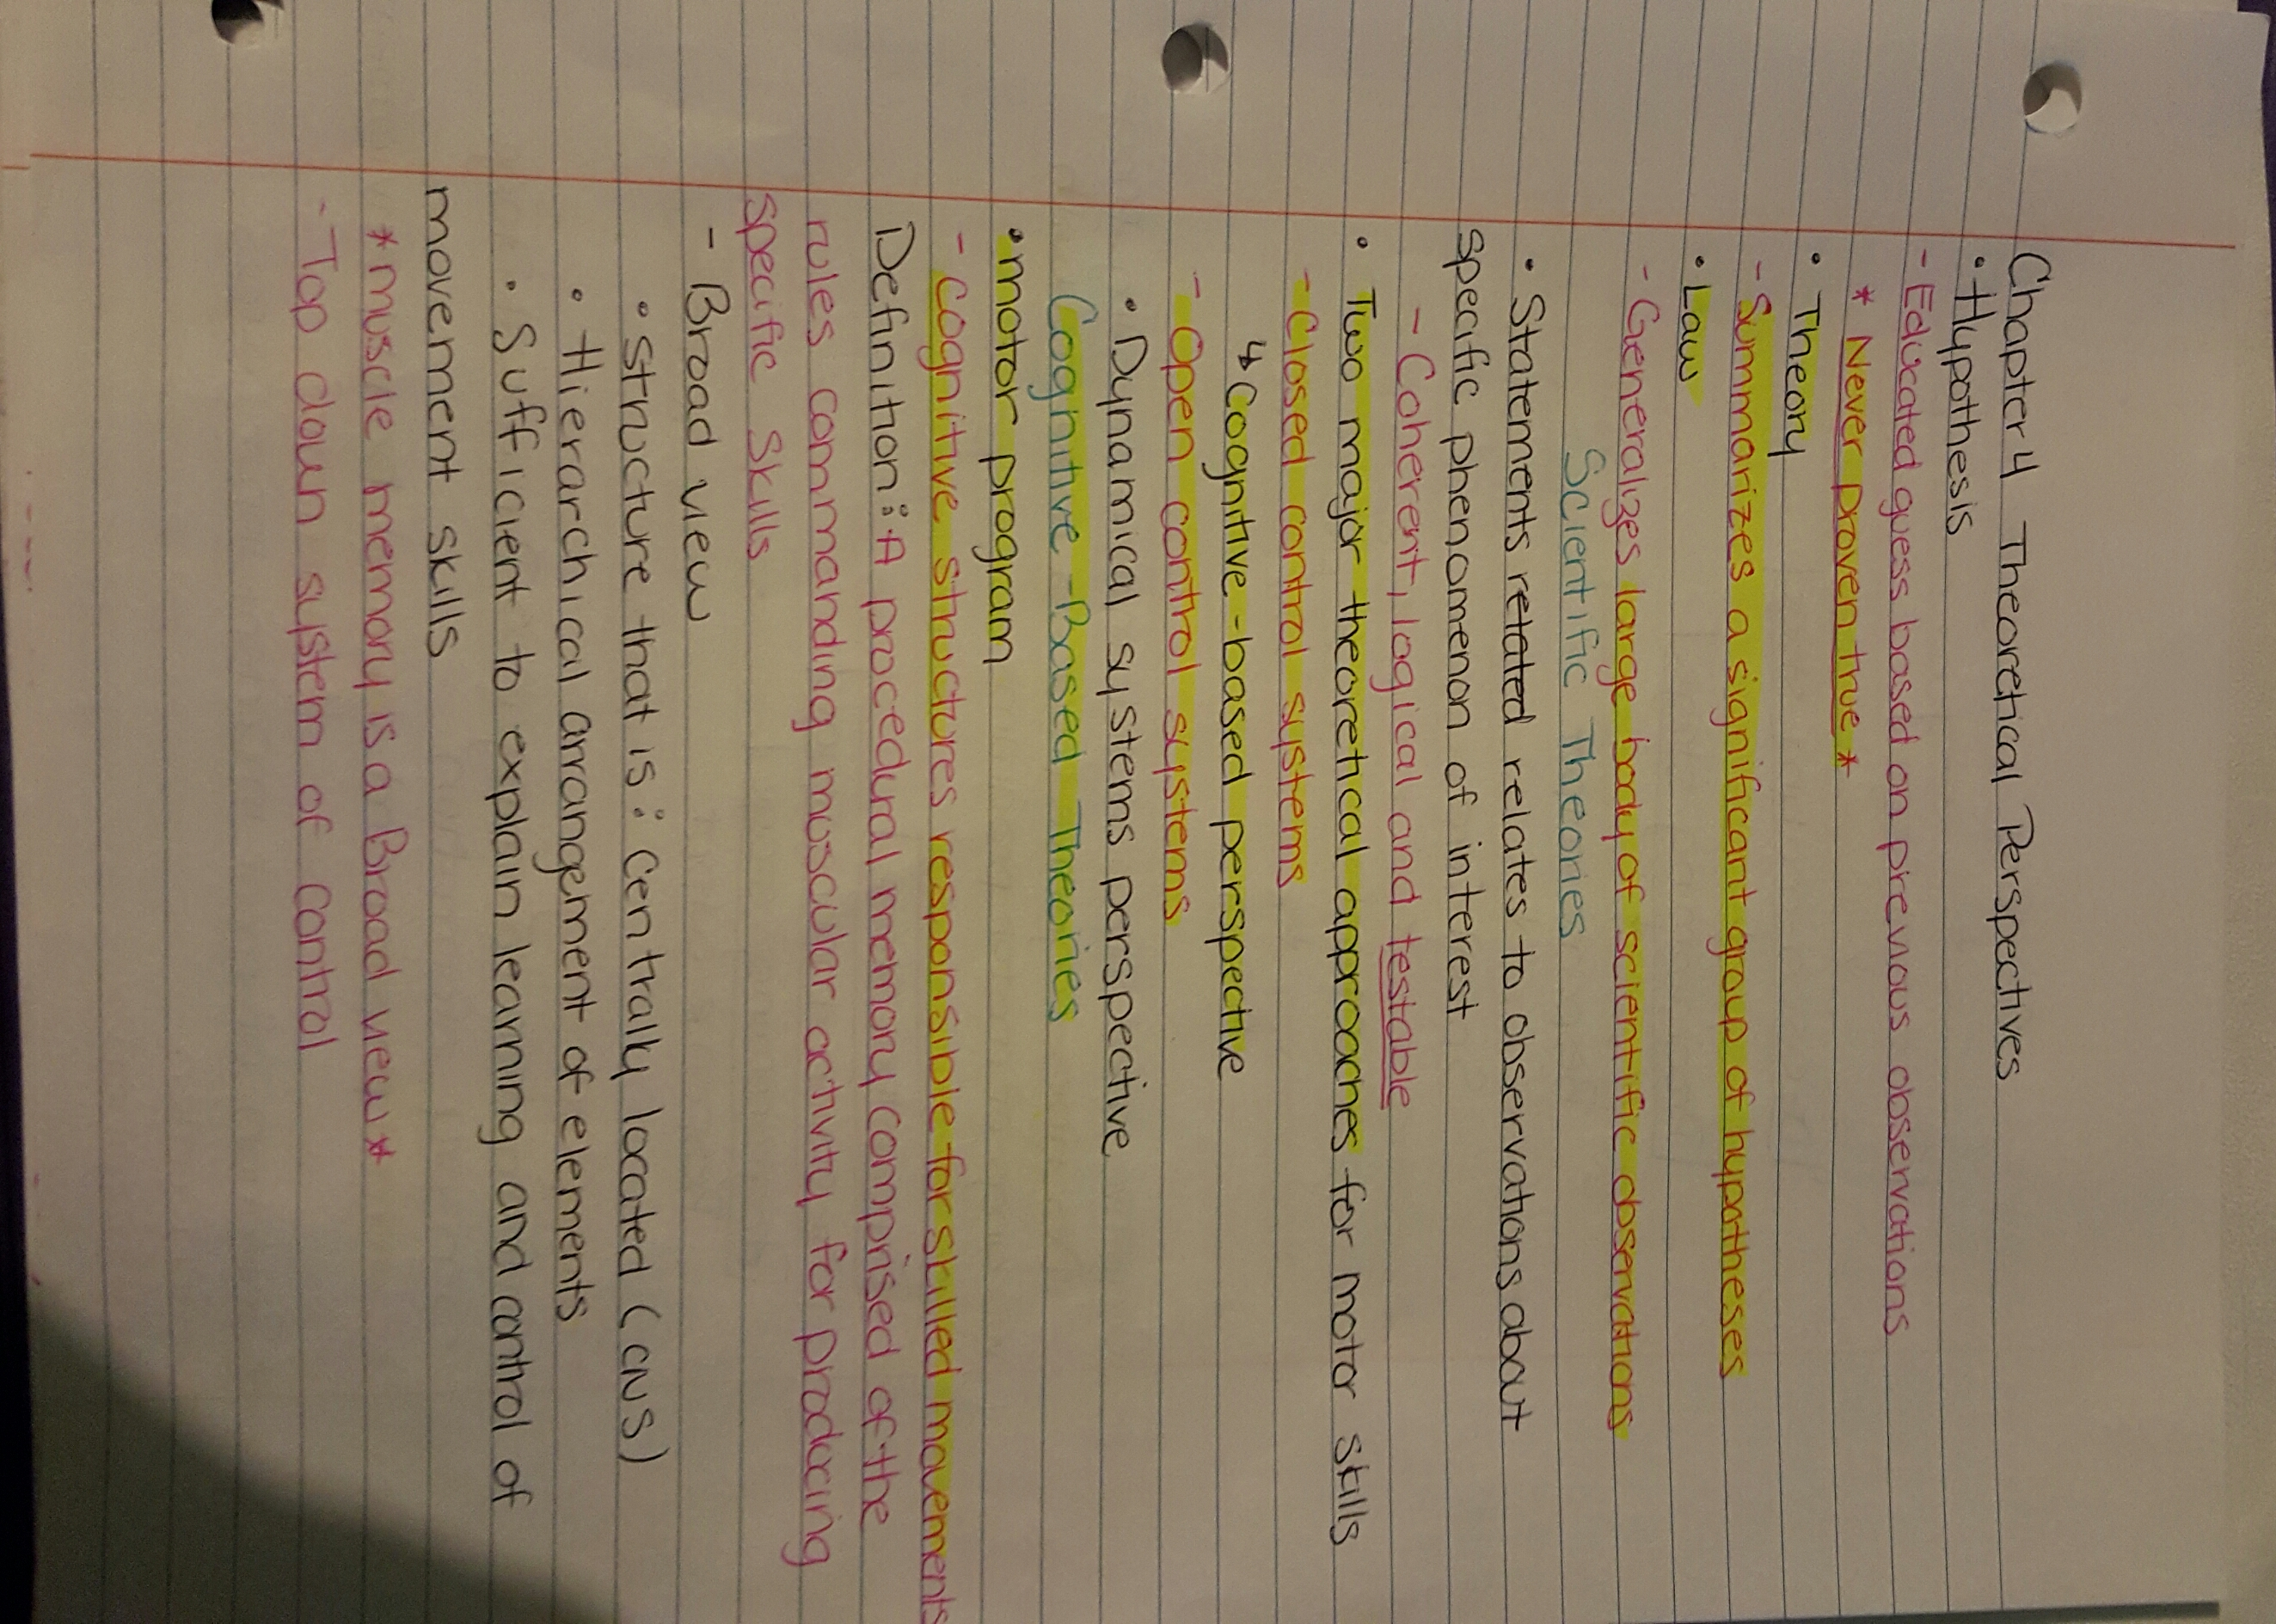 Chapter 4 Theoretical Perspectives
• Hypothesis
- Educated guess based on previous observations
* Never proven true *
• Theory
- Summarizes a significant group of hypotheses
• Law
- Generalizes large body of scientific observations
Scientific Theories
• Statements related relates to observations about
specific phenomenon of interest
- Coherent, logical and testable
• Two major theoretical approaches for motor skills
- Closed control systems
↳ Cognitive-based perspective
- Open control systems
• Dynamical systems perspective
Cognitive-Based Theories
• motor program
- Cognitive structures responsible for skilled movements
Definition: A procedural memory comprised of the
rules commanding muscular activity for producing
specific skills
- Broad view
• structure that is: Centrally located (CNS)
• Hierarchical arrangement of elements
• Sufficient to explain learning and control of
movement skills
* muscle memory is a Broad view *
- Top down system of control